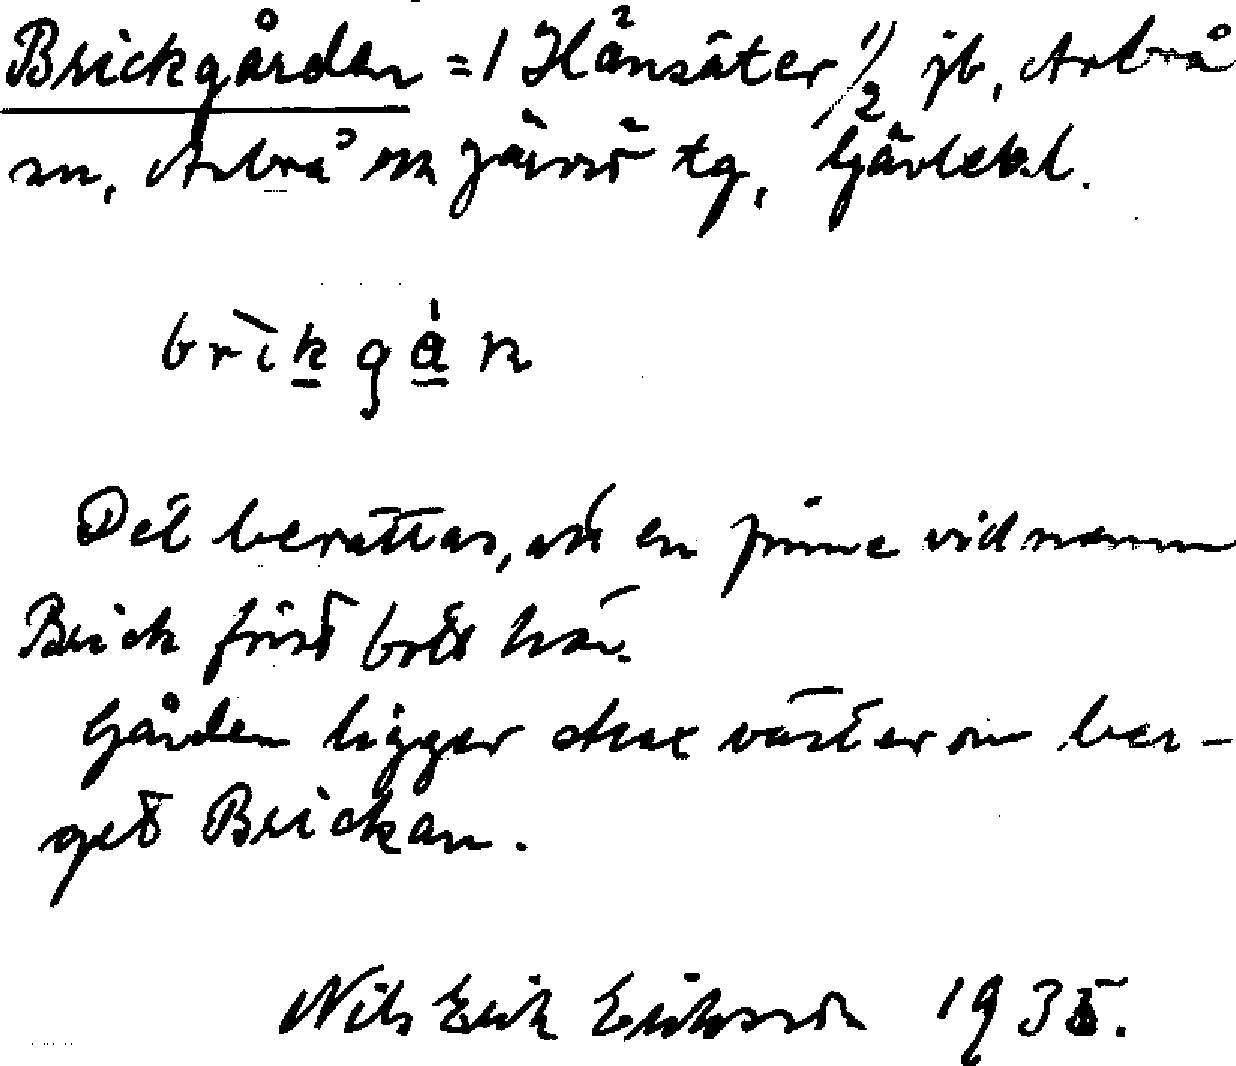 Brickgården = 1 Hånsäter 1/2 jb, Arbrå
sn, Arbrå o Järvsö tg, Gävlebl.
brìkgån
Det berättas, att en finne vid namn
Brick först bott här.
Gården ligger strax väster om ber-
get Brickan.
Nils Erik Eriksson 1935.